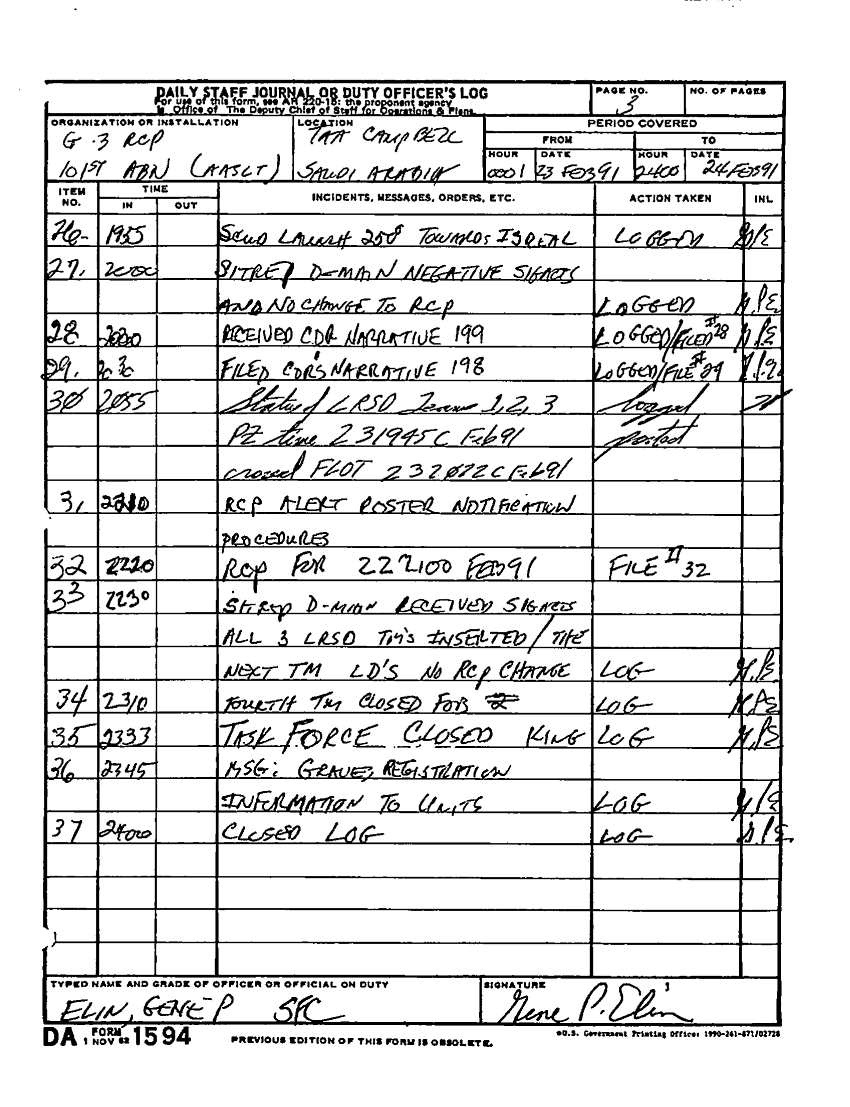 DAILY STAFF JOURNAL OR DUTY OFFICER'S LOG
For use of this form, see AR 220-15; the proponent agency
is Office of The Deputy Chief of Staff for Operations & Plans.
PAGE NO.
3
NO. OF PAGES
ORGANIZATION OR INSTALLATION
G-3 RCP
101ST ABN (AASLT)
LOCATION
TAA CAMPBELL
SAUDI ARABIA
PERIOD COVERED
FROM TO
HOUR DATE HOUR DATE
0001 23 FEB91 2400 24 FEB91
ITEM NO. TIME INCIDENTS, MESSAGES, ORDERS, ETC. ACTION TAKEN INL
IN OUT
26- 1955 SCUD LAUNCH 250° TOWARDS ISREAL LOGGED
27. 2000 SITREP D-MAIN NEGATIVE SIGACTS
AND NO CHANGE TO RCP LOGGED
28 RECEIVED CDR NARRATIVE 199 LOGGED/FILED #28
29. 2030 FILED CDR'S NARRATIVE 198 LOGGED/FILE #29
30 2055 Status of LRSD Teams 1, 2, 3 logged
PZ time 231945C Feb91 posted
crossed FLOT 232022C Feb91
31 2210 RCP ALERT ROSTER NOTIFICATION
PROCEDURES
32 2220 RCP FOR 222100 FEB91 FILE # 32
33 2230 SITREP D-MAIN RECEIVED SIGACTS
ALL 3 LRSD TM'S INSERTED / THE
NEXT TM LD'S NO RCP CHANGE LOG
34 2310 FOURTH TM CLOSED FOB LOG
35 2333 TASK FORCE CLOSED KING LOG
36 2345 MSG: GRAVES REGISTRATION
INFORMATION TO UNITS LOG
37 2400 CLOSED LOG LOG
TYPED NAME AND GRADE OF OFFICER OR OFFICIAL ON DUTY
ELIN, GENE P SFC
SIGNATURE
Gene P. Elin
DA FORM 1 NOV 62 1594
PREVIOUS EDITION OF THIS FORM IS OBSOLETE.
*U.S. Government Printing Office: 1990-261-871/02728